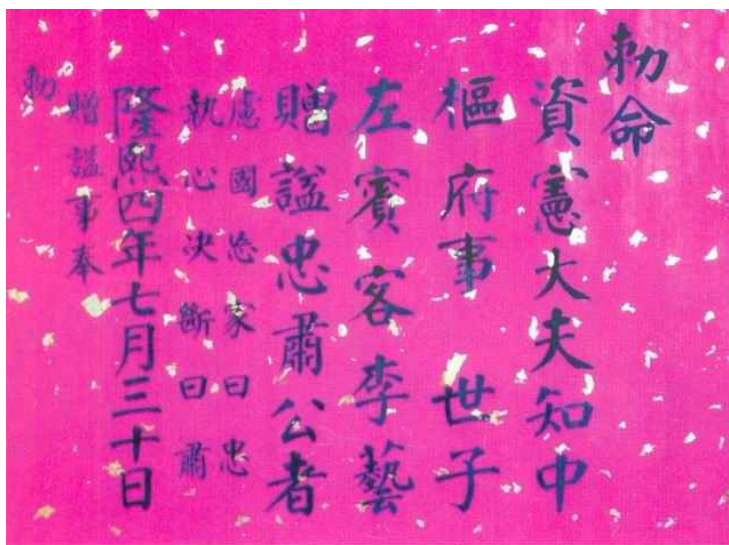 勅命
資憲大夫知中
樞府事 世子
左賓客李藝
贈諡忠肅公者
慮國忘家曰忠
執心決斷曰肅
隆熙四年七月三十日
贈諡事奉
勅